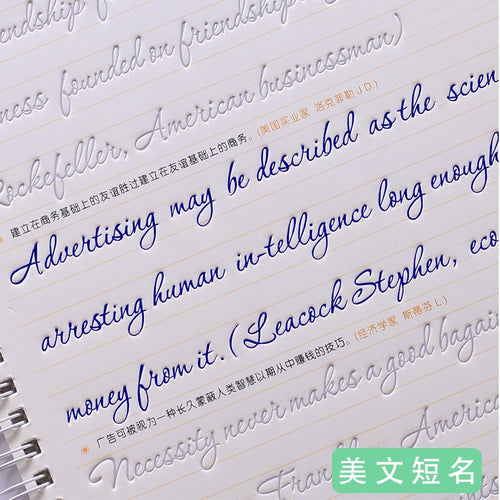 endship f
ness founded on friendship
Rockefeller, American businessman)
建立在商务基础上的友谊胜过建立在友谊基础上的商务。(美国实业家 洛克菲勒 J D.)
Advertising may be described as the scien
arresting human in-telligence long enough
money from it. (Leacock Stephen, eco
广告可被视为一种长久蒙蔽人类智慧以期从中赚钱的技巧。(经济学家 斯蒂芬 L.)
Necessity never makes a good bagain
Franklin, America
美文短名